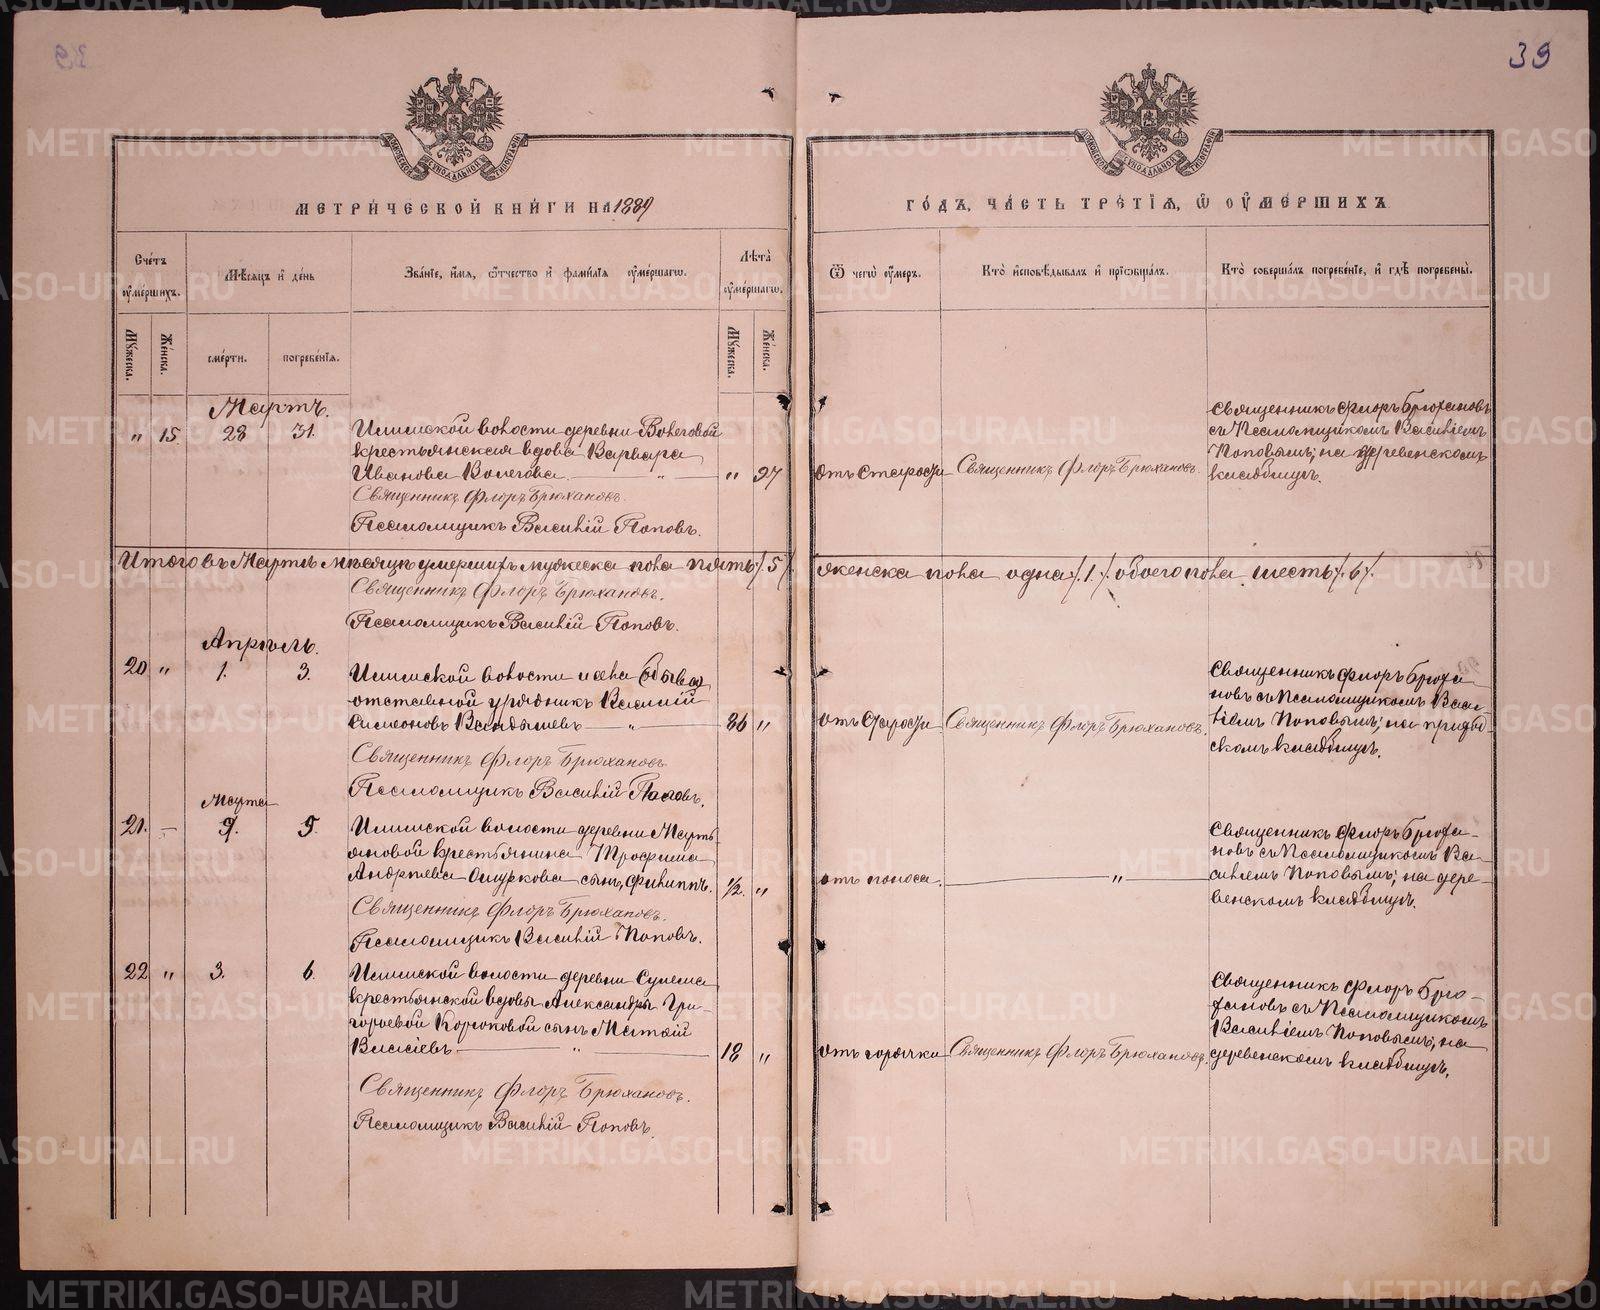 39
МЕТРИ́ЧЕСКОЙ КНИ́ГИ НА 1889
ГО́ДЪ, ЧА́СТЬ ТРЕ́ТІѦ, Ѿ ОУМЕ́РШИХЪ
Сче́тъ оуме́ршихъ.
Мѣ́сѧцъ и де́нь
Зва́ніе, и́мѧ, ѻ́тчество и фами́лїѧ оуме́ршагѡ.
Лѣ́та оуме́ршагѡ.
Ѿ чегѡ̀ оу́меръ.
Кто̀ и҆сповѣ́дывалъ и прїѡбща́лъ.
Кто̀ соверша́лъ погребе́нїе, и гдѣ̀ погребены̀.
Мꙋ́жеска.
Же́нска.
сме́рти.
погребе́нїѧ.
Мꙋ́жеска.
Же́нска.
Мартъ.
„ 15. 28 31.
волости деревни Волеговой
крестьянская вдова Варвара
Иванова Волегова. „ „ 97
Священникъ Флоръ Брюхановъ.
Псаломщикъ Василій Поповъ.
отъ старости
Священникъ Флоръ Брюхановъ.
Священникъ Флоръ Брюхановъ
съ Псаломщикомъ Василіемъ
Поповымъ; на деревенскомъ
кладбищѣ.
Итого въ Мартѣ мѣсяцѣ умершихъ мужеска пола пять /.5/. женска пола одна /.1./ обоего пола шесть /.6/.
Священникъ Флоръ Брюхановъ.
Псаломщикъ Василій Поповъ.
Апрѣль.
20 „ 1. 3.
волости и села
отставной урядникъ Василій
Симеоновъ „ 86 „
Священникъ Флоръ Брюхановъ.
Псаломщикъ Василій Поповъ.
отъ старости
Священникъ Флоръ Брюхановъ.
Священникъ Флоръ Брюха-
новъ съ Псаломщикомъ Васи-
ліемъ Поповымъ; на приход-
скомъ кладбищѣ.
Марта
21. — 5.
волости деревни Марть-
яновой крестьянина Трофима
Андреева Ошуркова сынъ, Филиппъ. ½. „
Священникъ Флоръ Брюхановъ.
Псаломщикъ Василій Поповъ.
отъ поноса. „
Священникъ Флоръ Брюха-
новъ съ Псаломщикомъ Ва-
силіемъ Поповымъ; на дере-
венскомъ кладбищѣ.
22 „ 3. 6.
волости деревни Сулема
крестьянской вдовы Александры Гри-
горьевой сынъ
Власіевъ „ 18 „
Священникъ Флоръ Брюхановъ.
Псаломщикъ Василій Поповъ.
отъ горячки
Священникъ Флоръ Брюхановъ.
Священникъ Флоръ Брю-
хановъ съ Псаломщикомъ
Василіемъ Поповымъ; на
деревенскомъ кладбищѣ.
METRIKI.GASO-URAL.RU